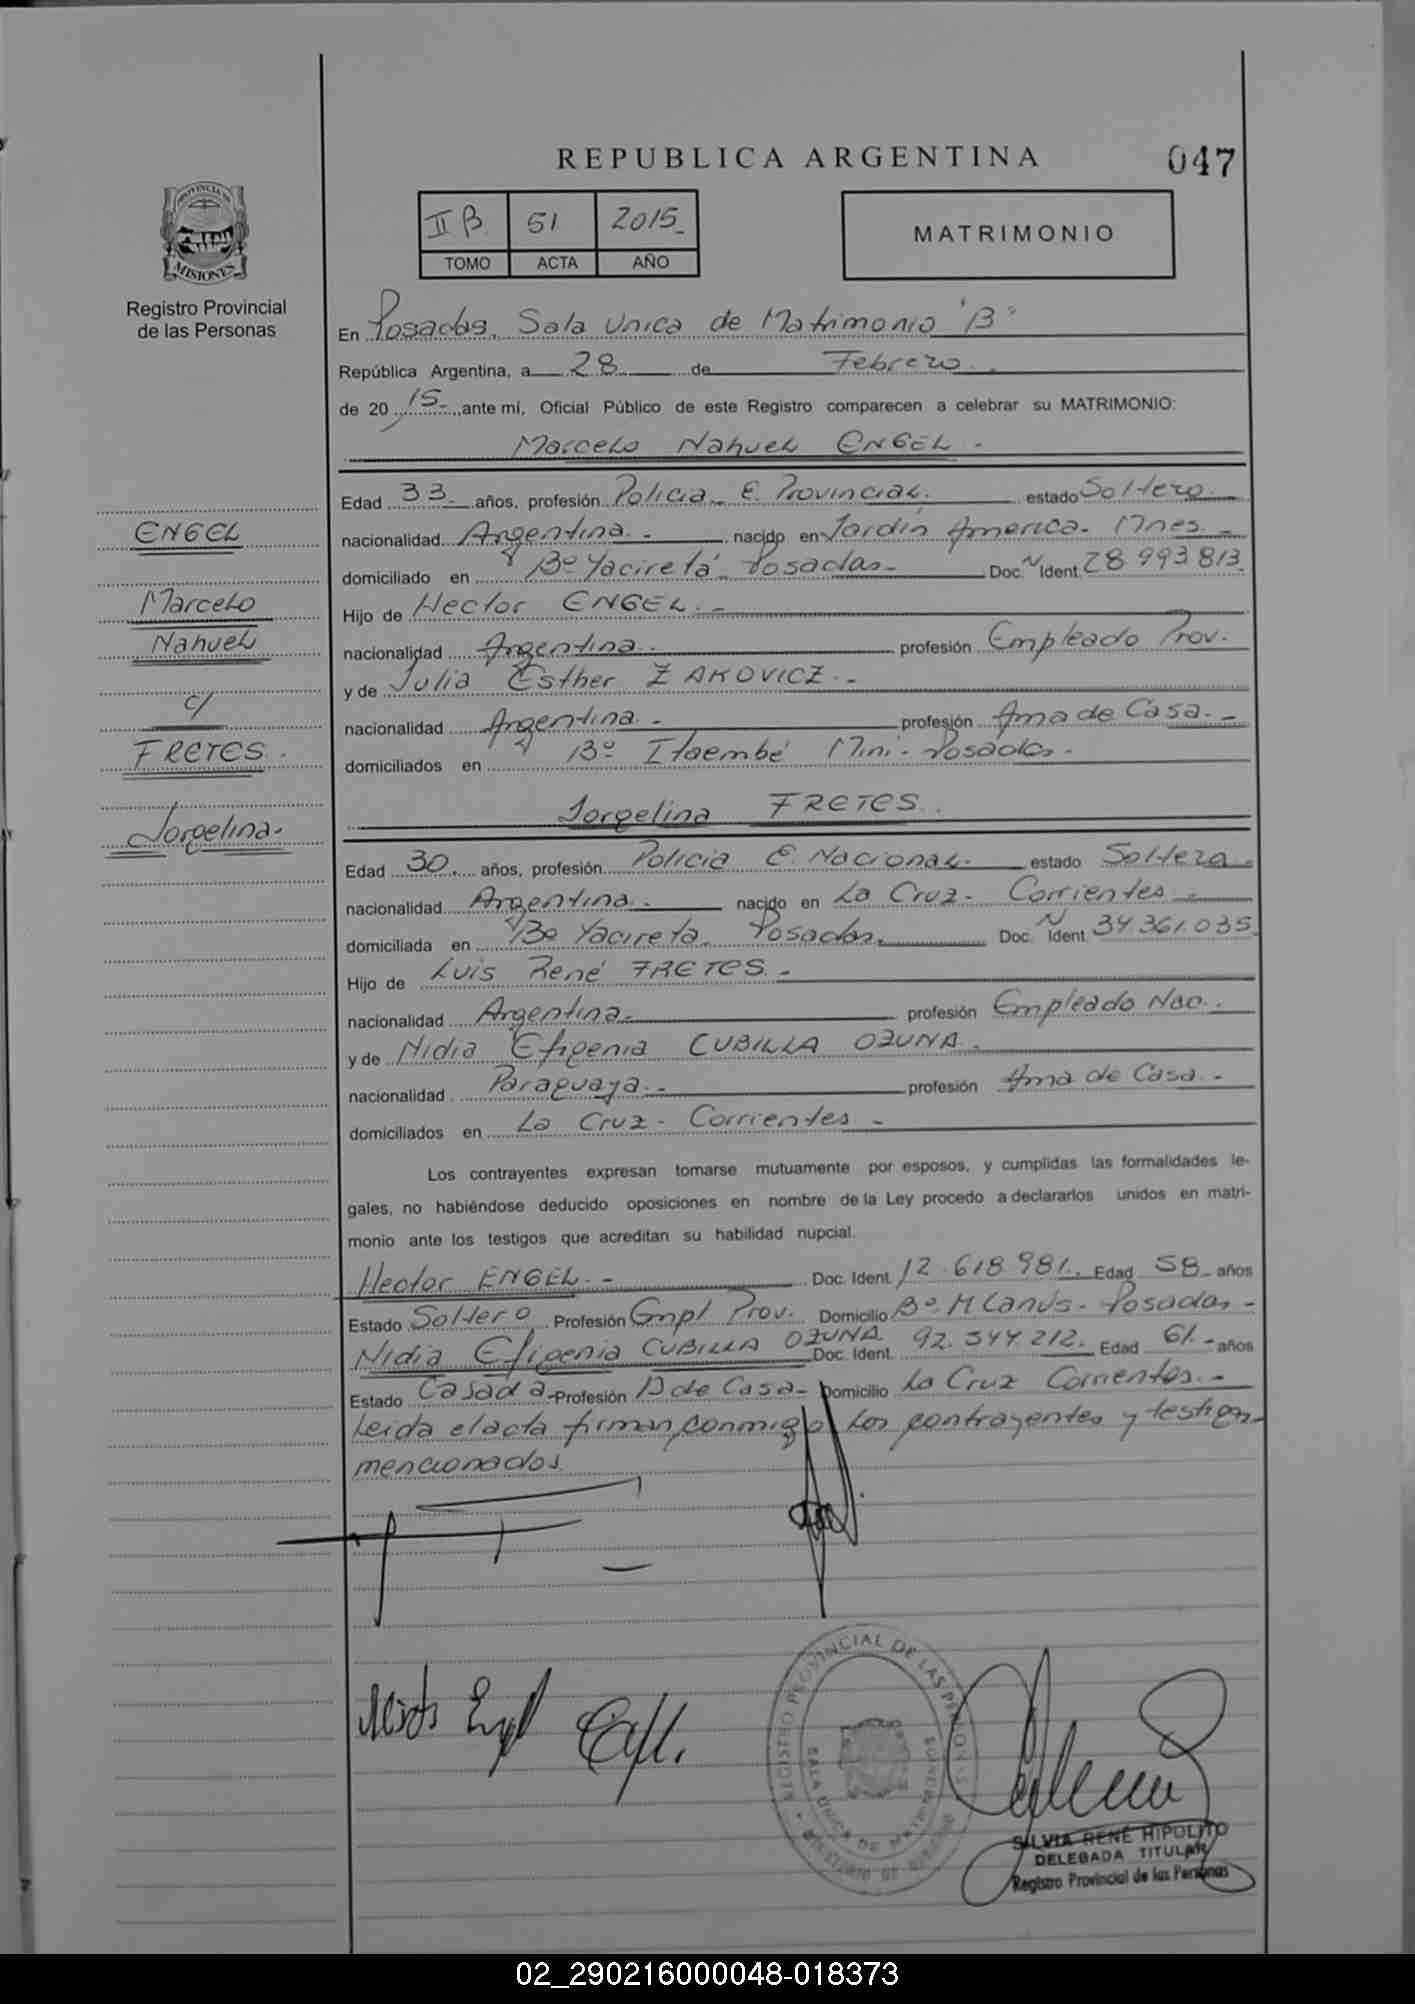 REPUBLICA ARGENTINA
047
PROVINCIA DE
MISIONES
Registro Provincial
de las Personas
II B 51 2015
TOMO ACTA AÑO
MATRIMONIO
En Posadas, Sala Unica de Matrimonio "B"
República Argentina, a 28 de Febrero.
de 20 15 ante mí, Oficial Público de este Registro comparecen a celebrar su MATRIMONIO:
Marcelo Nahuel ENGEL -
Edad 33 años, profesión Policia E. Provincial. estado Soltero.
nacionalidad Argentina. - nacido en Jardín America. Mnes -
domiciliado en Bº Yacireta - Posadas - Doc. N Ident. 28 993 813
Hijo de Hector ENGEL. -
nacionalidad Argentina. profesión Empleado Prov.
y de Julia Esther ZAKOVICZ. -
nacionalidad Argentina. - profesión Ama de Casa. -
domiciliados en Bº Itaembé Mini - Posadas -
Jorgelina FRETES.
Edad 30 años, profesión Policia E. Nacional. estado Soltera
nacionalidad Argentina. - nacido en La Cruz - Corrientes -
domiciliada en Bº Yacireta. Posadas. Doc. N Ident. 34 361.035
Hijo de Luis René FRETES. -
nacionalidad Argentina. profesión Empleado Nac.
y de Nidia Efigenia CUBILLA OZUNA.
nacionalidad Paraguaya. - profesión Ama de Casa. -
domiciliados en La Cruz - Corrientes -
Los contrayentes expresan tomarse mutuamente por esposos, y cumplidas las formalidades le-
gales, no habiéndose deducido oposiciones en nombre de la Ley procedo a declararlos unidos en matri-
monio ante los testigos que acreditan su habilidad nupcial.
Hector ENGEL. - Doc. Ident. 12.618.981. Edad 58 años
Estado Soltero Profesión Empl Prov. Domicilio Bº M Lanús - Posadas -
Nidia Efigenia CUBILLA OZUNA Doc. Ident. 92.544.212. Edad 61 - años
Estado Casada - Profesión A de Casa - Domicilio La Cruz Corrientes. -
Leida el acta firman conmigo los contrayentes y testigos
mencionados.
ENGEL
Marcelo
Nahuel
c/
FRETES.
Jorgelina.
REGISTRO PROVINCIAL DE LAS PERSONAS
SALA UNICA DE MATRIMONIOS
MINISTERIO DE GOBIERNO
SILVIA RENÉ HIPOLITO
DELEGADA TITULAR
Registro Provincial de las Personas
02_290216000048-018373